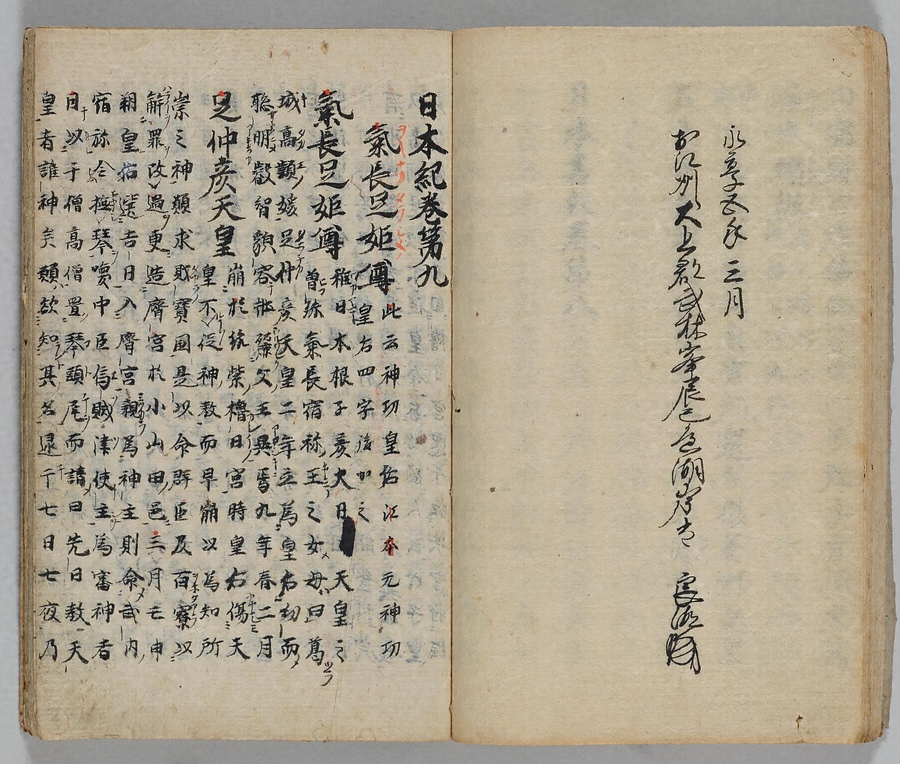 永享五年三月
於江州犬上郡
日本紀卷第九
氣長足姬尊 此云神功皇后江本元神功皇后四字後加之
氣長足姬尊 稚日本根子彥大日日天皇之曾孫氣長宿祢王之女母曰葛
城高顙媛足仲彥天皇二年立為皇后幼而
聡明叡智貌容壮麗父王異焉九年春二月
足仲彥天皇崩於筑紫橿日宮時皇后傷天皇不従神教而早崩以為知所
崇之神欲求財寶國是以命群臣及百寮以
解罪改過更造齋宮於小山田邑三月壬申
朔皇后選吉日入齋宮親為神主則命武内
宿祢令撫琴喚中臣烏賊津使主為審神者
因以千僧高僧置琴頭尾而請曰先日教天
皇者誰神矣願欲知其名逮于七日七夜乃